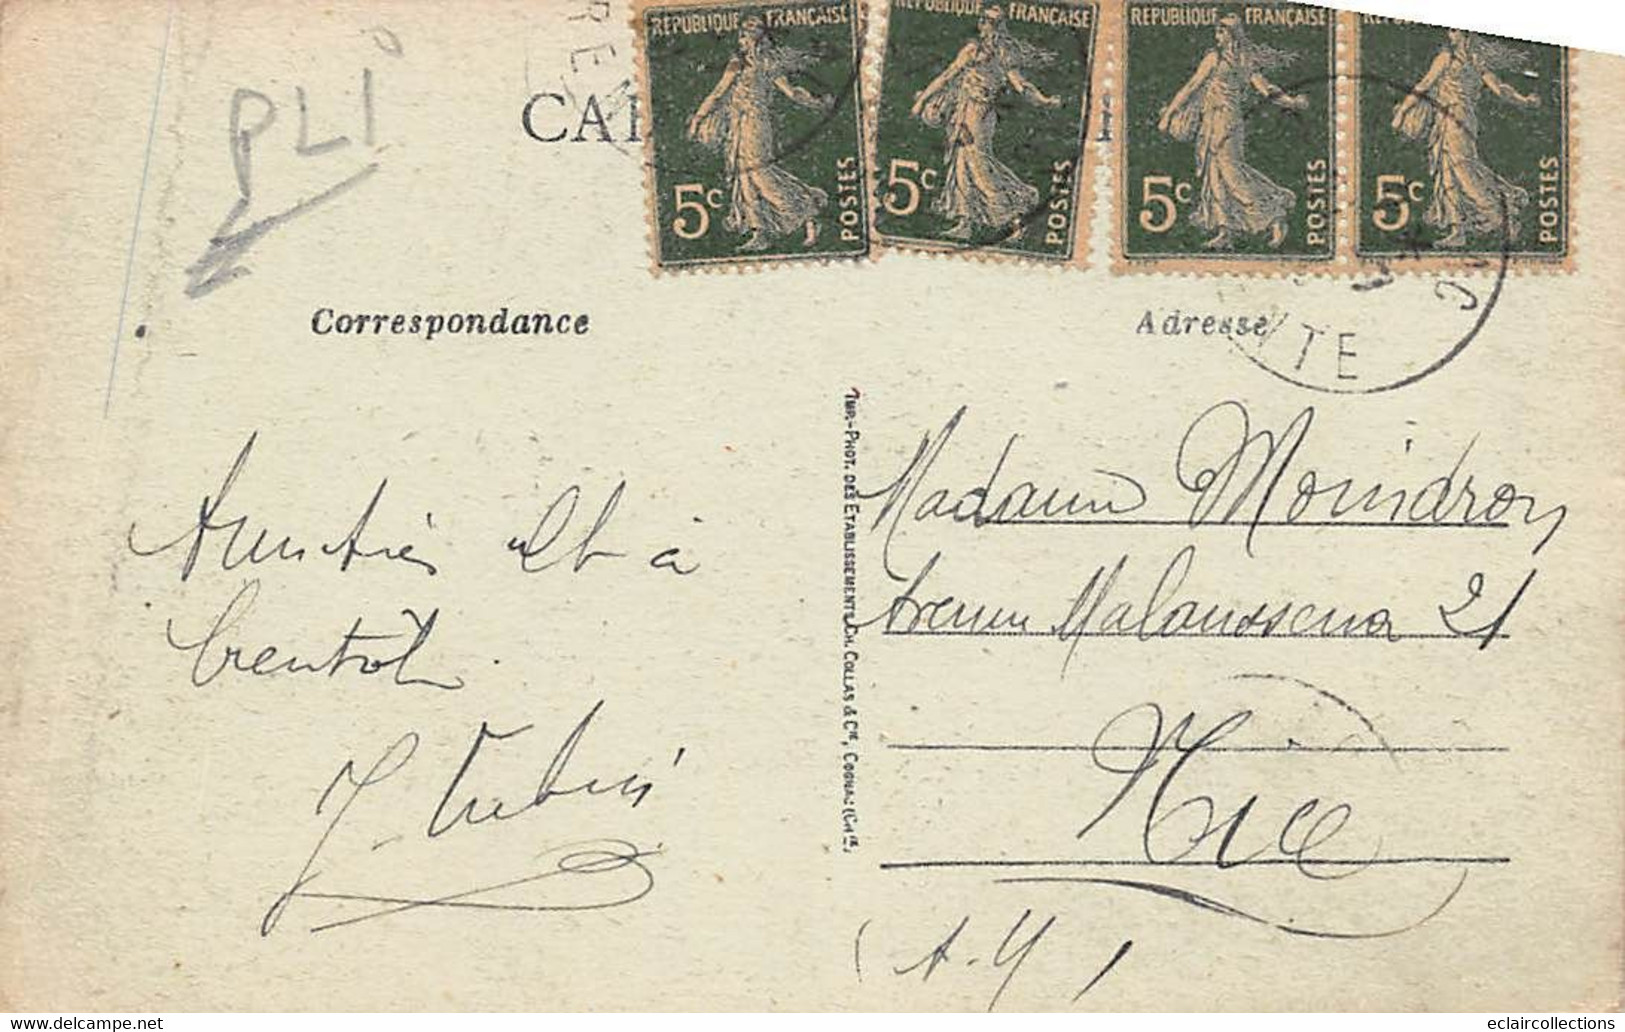 PLI
CAR
REPUBLIQUE FRANÇAISE
5c POSTES
REPUBLIQUE FRANÇAISE
5c POSTES
REPUBLIQUE FRANÇAISE
5c POSTES
REPUBLIQUE FRANÇAISE
5c POSTES
Correspondance
Adresse
à
bientôt
J.
IMP.-PHOT. DES ETABLISSEMENTS CH. COLLAS & Cie, COGNAC (Chte)
Madame Moindron
Avenue Malaussena 21
Nice
(A. M)
www.delcampe.net
eclaircollections